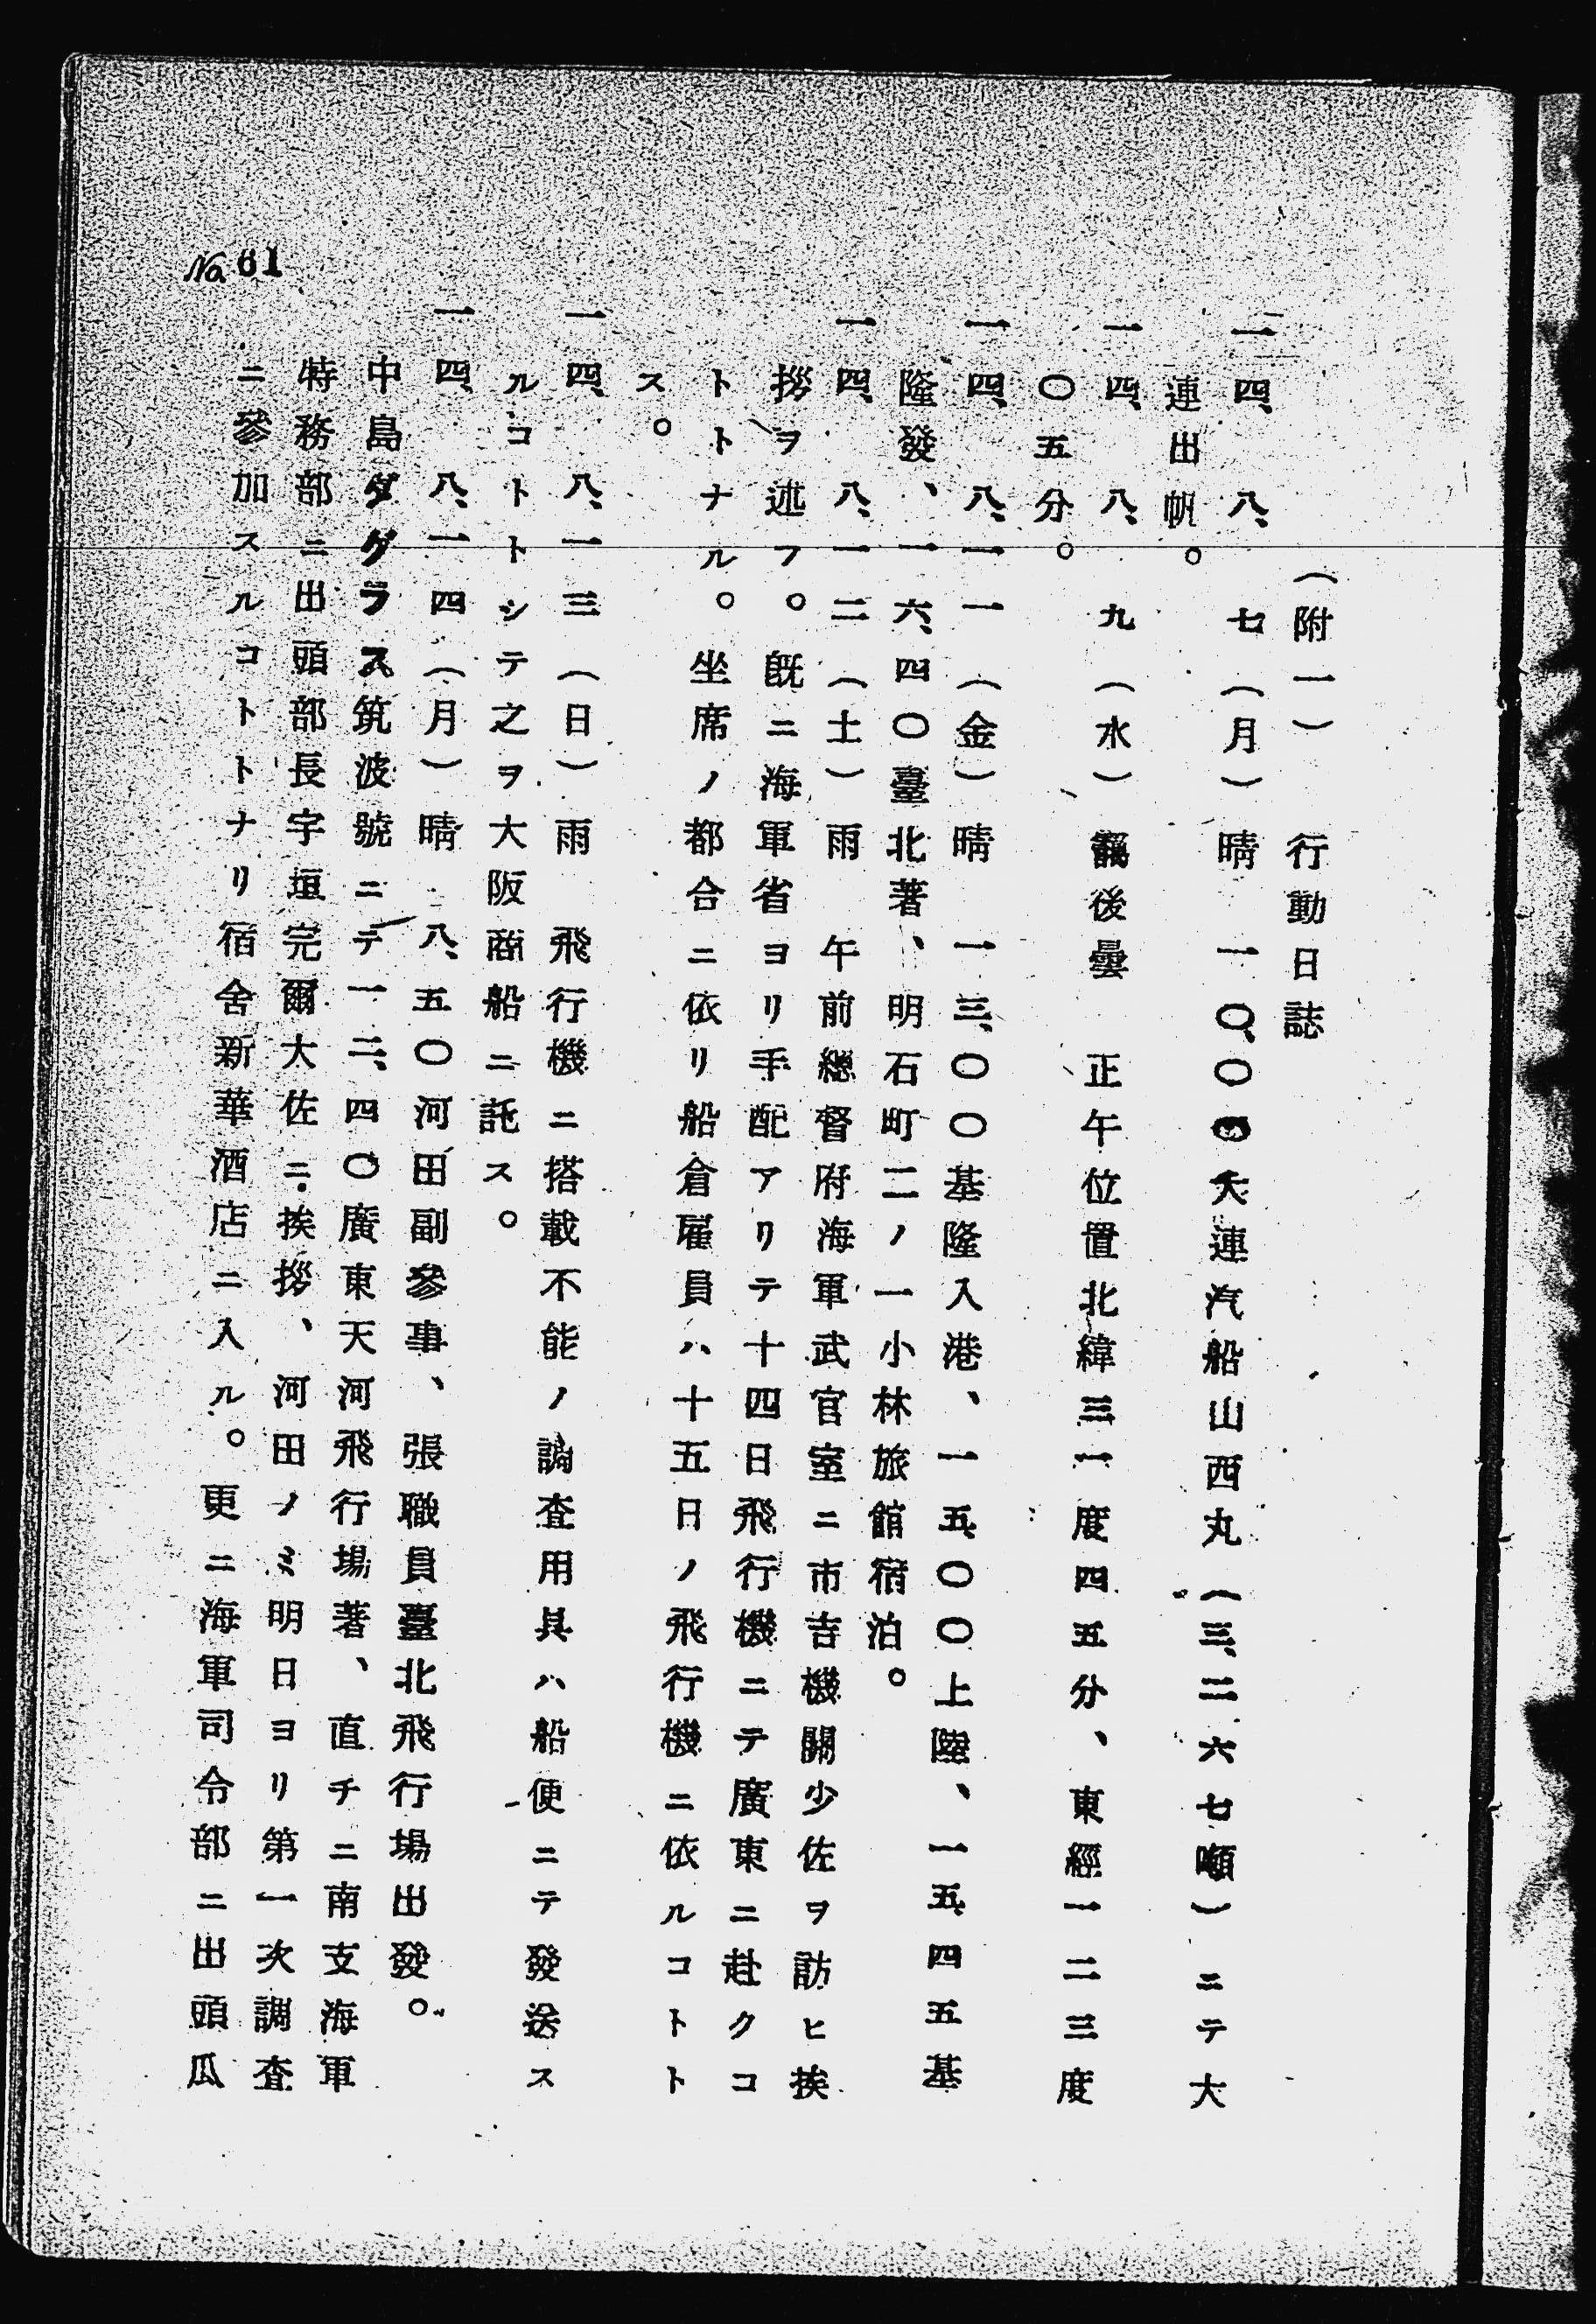 (附一) 行動日誌
一四、八、七(月) 晴 一〇、〇〇大連汽船山西丸(三、二六七噸)ニテ大
連出帆。
一四、八、九(水) 後曇 正午位置北緯三一度四五分、東經一二三度
〇五分。
一四、八、一一(金) 晴 一三、〇〇基隆入港、一五、〇〇上陸、一五、四五基
隆發、一六、四〇臺北著、明石町二ノ一小林旅館宿泊。
一四、八、一二(土) 雨 午前總督府海軍武官室ニ市吉機關少佐ヲ訪ヒ挨
拶ヲ述フ。既ニ海軍省ヨリ手配アリテ十四日飛行機ニテ廣東ニ赴クコ
トトナル。坐席ノ都合ニ依リ船倉雇員ハ十五日ノ飛行機ニ依ルコトト
ス。
一四、八、一三(日) 雨 飛行機ニ搭載不能ノ調査用具ハ船便ニテ發送ス
ルコトトシテ之ヲ大阪商船ニ託ス。
一四、八、一四(月) 晴 八、五〇河田副參事、張職員臺北飛行場出發。
中島ダグラス筑波號ニテ一二、四〇廣東天河飛行場著、直チニ南支海軍
特務部ニ出頭部長宇垣完爾大佐ニ挨拶、河田ノミ明日ヨリ第一次調査
ニ參加スルコトトナリ宿舍新華酒店ニ入ル。更ニ海軍司令部ニ出頭瓜
No 61